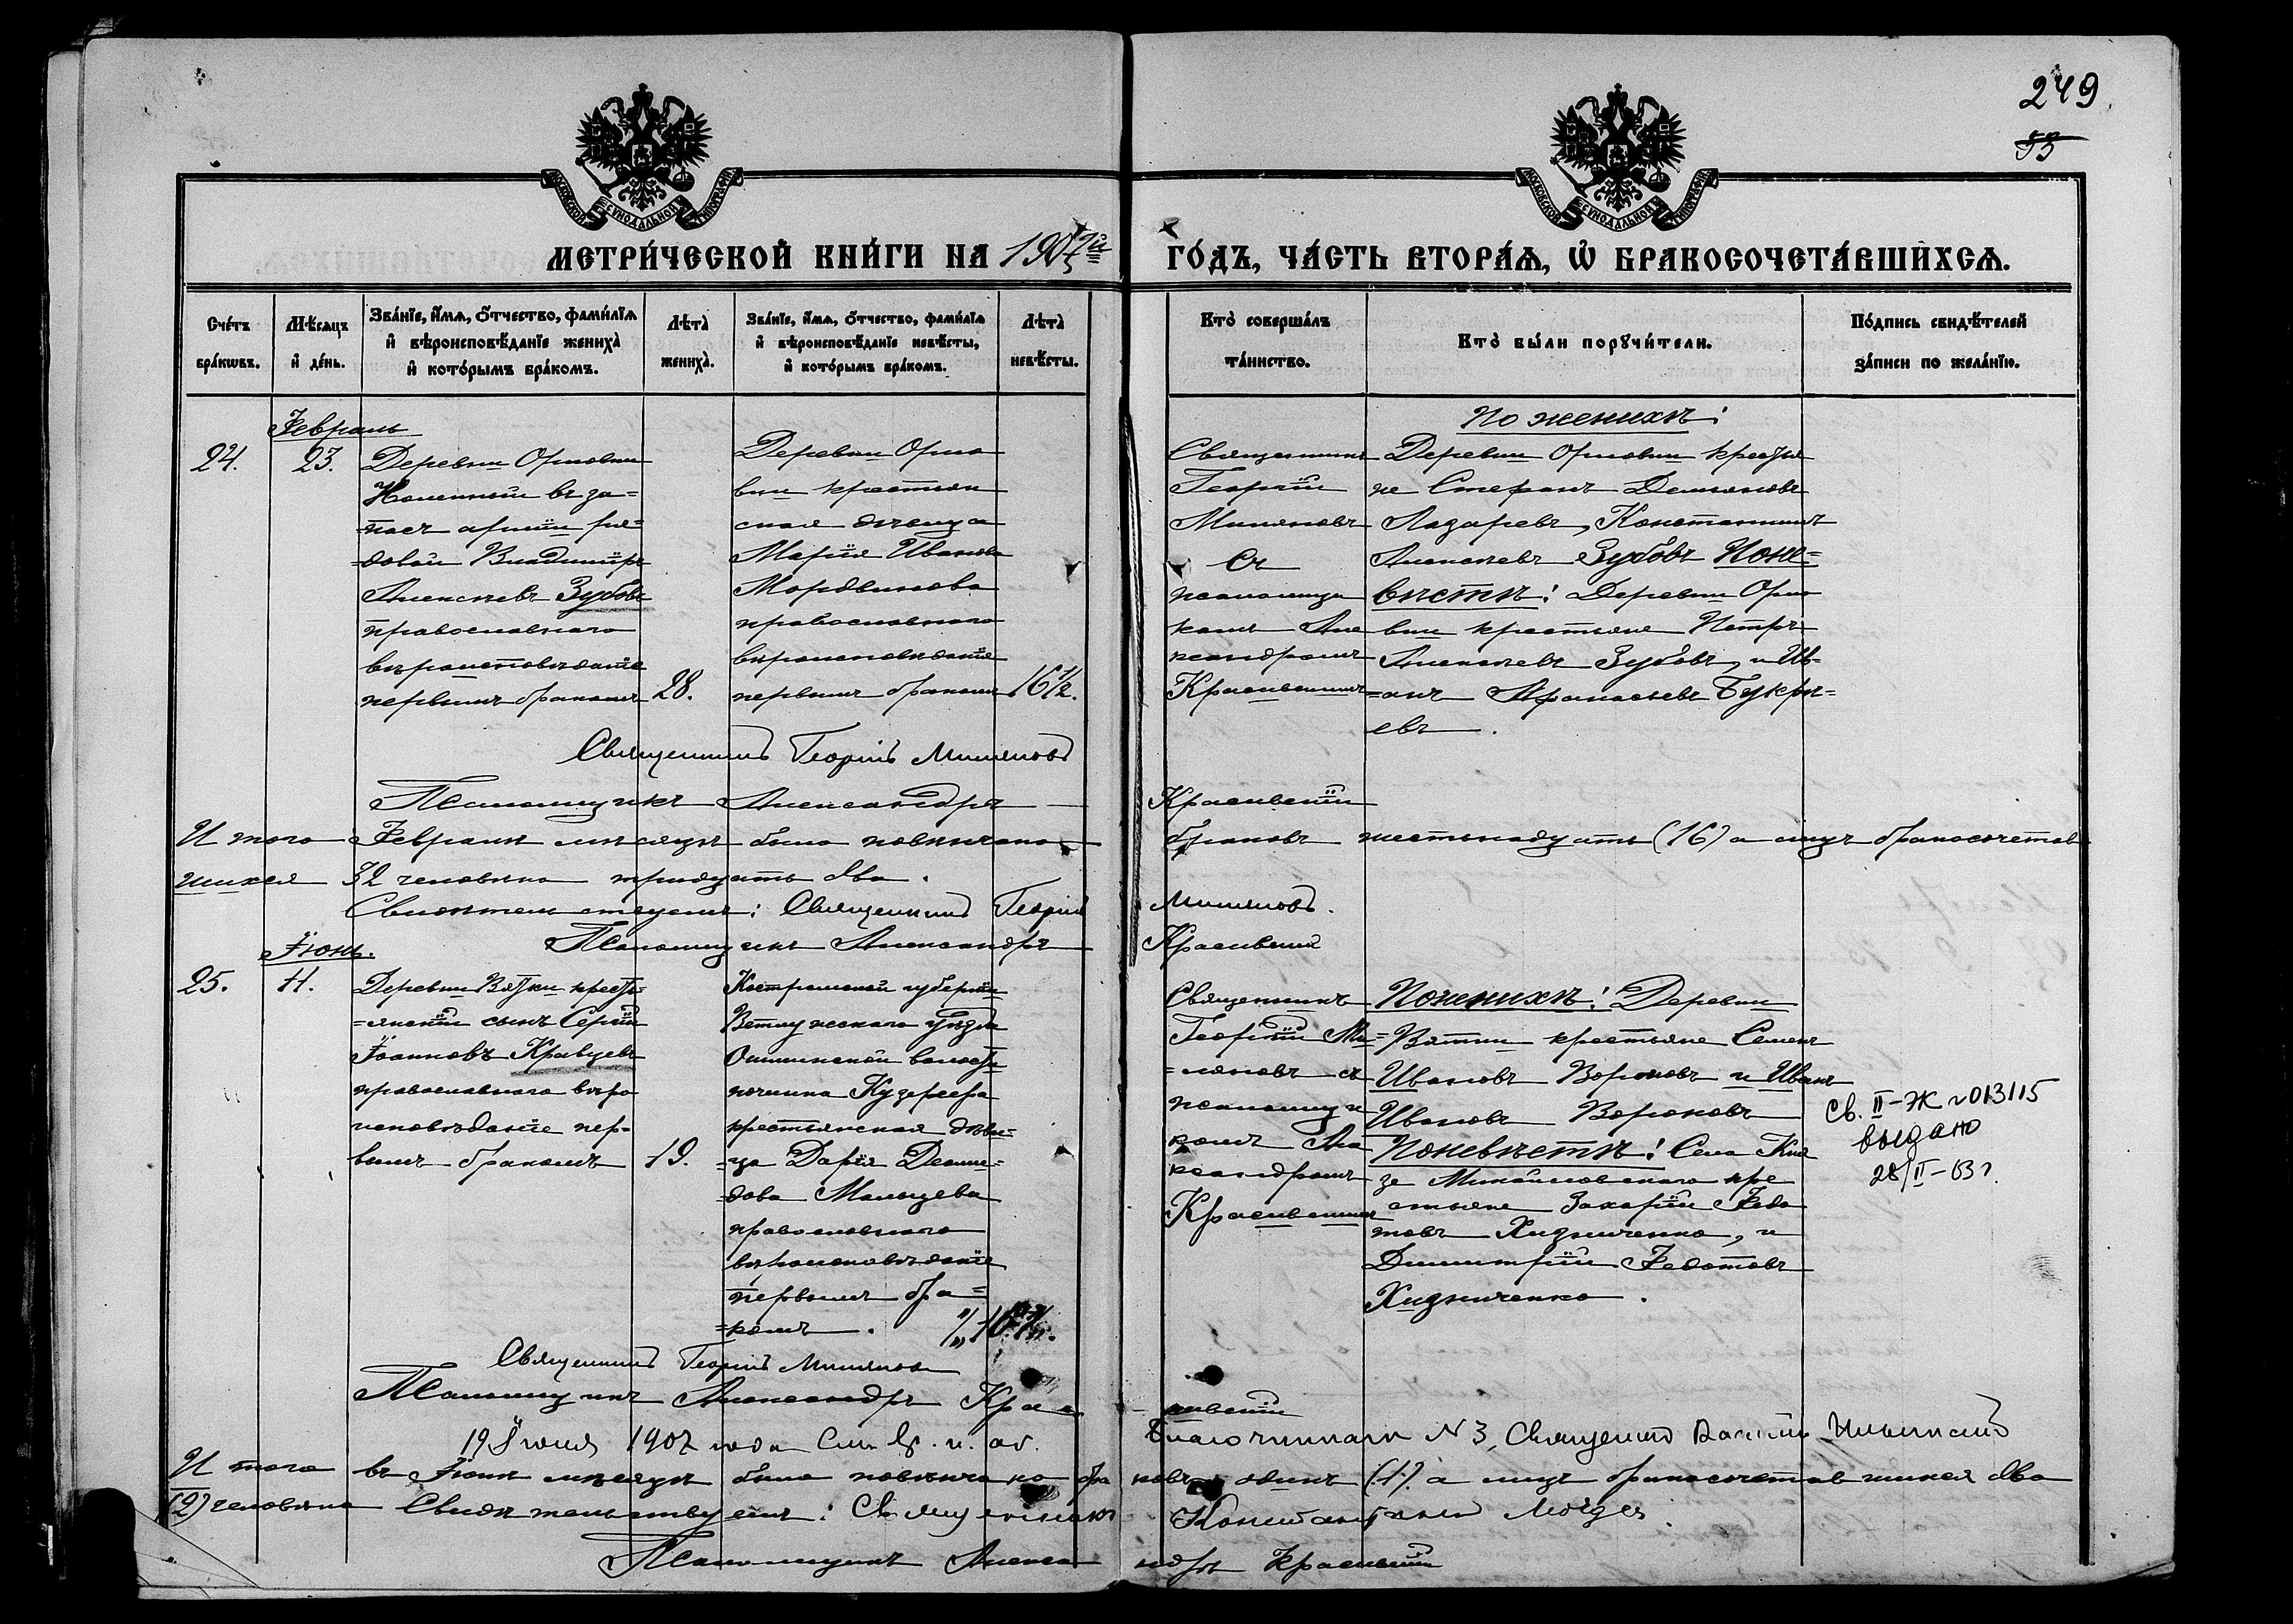 249
53
МОСКОВСКОЙ СѴНОДАЛЬНОЙ ТИПОГРАФІИ
МОСКОВСКОЙ СѴНОДАЛЬНОЙ ТИПОГРАФІИ
МЕТРИ́ЧЕСКОЙ КНИ́ГИ НА 1907й ГО́ДЪ, ЧА́СТЬ ВТОРА́Ѧ, Ѡ҆ БРАКОСОЧЕТА́ВШИХСѦ.
Сче́тъ бра́кѡвъ.
Мѣ́сѧцъ и҆ де́нь.
Зва́нїе, и҆́мѧ, ѻ҆́тчество, фами́лїѧ
и҆ вѣроисповѣ́данїе жениха̀
и҆ кото́рымъ бра́комъ.
Лѣта̀ жениха̀.
Зва́нїе, и҆́мѧ, ѻ҆́тчество, фами́лїѧ
и҆ вѣроисповѣ́данїе невѣ́сты,
и҆ кото́рымъ бра́комъ.
Лѣта̀ невѣ́сты.
Кто̀ соверша́лъ та́инство.
Кто̀ бы́ли порꙋчи́тели.
По́дпись свидѣ́телей за́писи по жела́нїю.
Февраль
24.
23.
Деревни Орловки
въ за=
=пасъ арміи ря=
=довой Владиміръ
Алексѣевъ Зубовъ
православнаго
вѣроисповѣданіе
первымъ бракомъ
28.
Деревни Орло
вки крестьян
ская дѣвица
Марія Иванова
Мордвинова
православнаго
вѣроисповѣданіе
первымъ бракомъ
16½.
Священникъ
Георгій
Миляновъ
Съ
псаломщи
комъ Але
ксандромъ
Красивскимъ
По женихѣ:
Деревни Орловки крестья
не Стефанъ Демьяновъ
Лазаревъ, Константинъ
Алексѣевъ Зубовъ По не=
вѣстѣ: Деревни Орло
вки крестьяне Петръ
Алексѣевъ Зубовъ, и Ив=
=анъ Афанасьевъ Букрѣ=
евъ.
Священникъ Георгій Миляновъ
Псаломщикъ Александръ Красивскій
И того Февралѣ мѣсяцѣ было повѣнчано браковъ шестьнадцать (16) а лицъ бракосочетав
шихся 32 человѣка тридцать два.
Свидѣтельствуемъ: Священникъ Георгій Миляновъ.
Псаломщикъ Александръ Красивскій
Іюнь.
25.
11.
Деревни Вятки кресть
=янскій сынъ Сергій
Іоанновъ Кравцевъ
православнаго вѣро
исповѣданіе пер=
вымъ бракомъ
19.
Костромской губерніи
Ветлужскаго уѣзда
волости
починка
крестьянская дѣви=
=ца Дарія
=дова Мальцева
православнаго
вѣроисповѣданіе
первымъ бра=
=комъ.
Священникъ
Георгій Ми=
=ляновъ съ
псаломщи
комъ Але
ксандромъ
Красивскимъ
По женихѣ: Деревни
Вятки крестьяне Семенъ
Ивановъ Вороновъ и Иванъ
Ивановъ Вороновъ
По невѣстѣ: Села Кня
зе Михайловскаго кре
стьяне Захарій Федо
товъ Хизниченко, и
Димитрій Федотовъ
Хизниченко.
Св. II-Ж № 013115
выдано
28/II-63 г.
Священникъ Георгій Миляновъ
Псаломщикъ Александръ Красивскій
1907 года Благочинный № 3, Священникъ Ильинскій
И того въ Іюнѣ мѣсяцѣ было повѣнчано браковъ одинъ (1) а лицъ бракосочетавшихся два
(2) человѣка Свидѣтельствуемъ: Священникъ
Псаломщикъ Александръ Красивскій